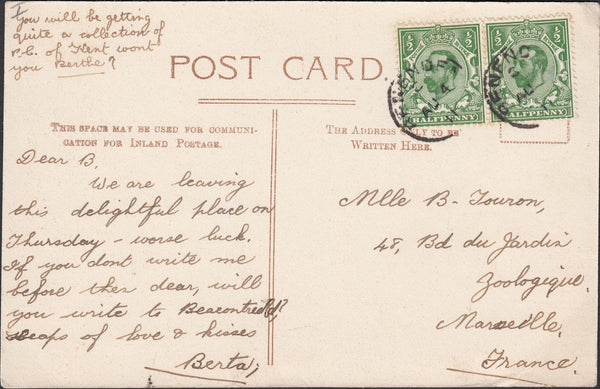 You will be getting
quite a collection of
p.c. of Kent wont
you Berthe?
POST CARD.
THIS SPACE MAY BE USED FOR COMMUNI-
CATION FOR INLAND POSTAGE.
THE ADDRESS ONLY TO BE
WRITTEN HERE.
½ ½
HALFPENNY
½ ½
HALFPENNY
Dear B.
We are leaving
this delightful place on
Thursday - worse luck.
If you dont write me
before then dear, will
you write to Beacontree Rd?
heaps of love & kisses
Berta,
Mlle B- Touron,
48, Bd du Jardin
Zoologique,
Marseille,
France.